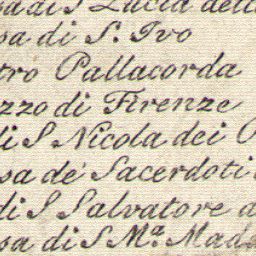 sa di S Lucia della
sa di S. Ivo
tro Pallacorda
zzo di Firenze
di S Nicola dei P
sa de' Sacerdoti
di S Salvatore a
sa di S Mª Mada